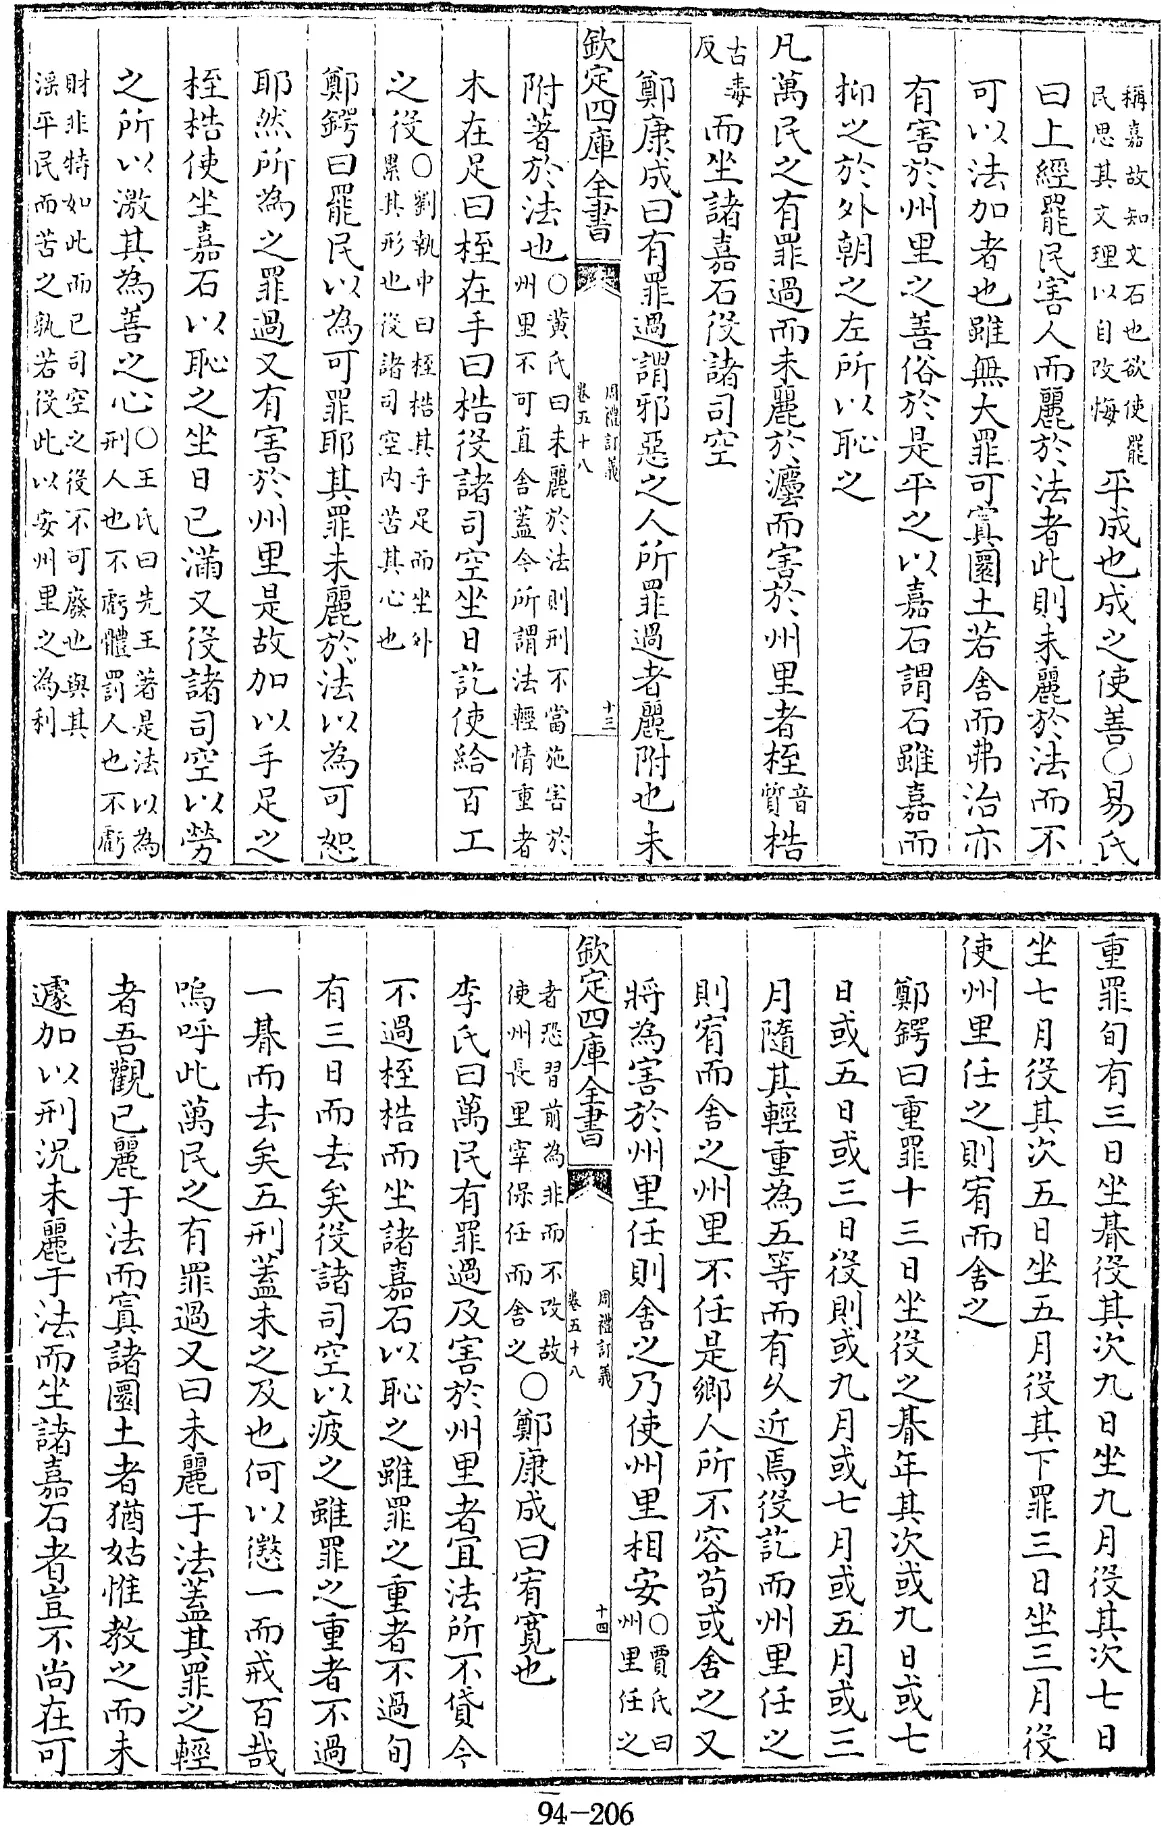 稱嘉故知文石也欲使罷
民思其文理以自改悔
平成也成之使善○易氏
曰上經罷民害人而麗於法者此則未麗於法而不
可以法加者也雖無大罪可寘圜土若舍而弗治亦
有害於州里之善俗於是平之以嘉石謂石雖嘉而
抑之於外朝之左所以恥之
凡萬民之有罪過而未麗於灋而害於州里者桎
音
質
梏
古毒
反
而坐諸嘉石役諸司空
鄭康成曰有罪過謂邪惡之人所罪過者麗附也未
欽定四庫全書
周禮訂義
卷五十八
十三
附著於法也○
黄氏曰未麗於法則刑不當施害於
州里不可直舍蓋今所謂法輕情重者
木在足曰桎在手曰梏役諸司空坐日訖使給百工
之役○
劉執中曰桎梏其手足而坐外
累其形也役諸司空内苦其心也
鄭鍔曰罷民以為可罪耶其罪未麗於法以為可恕
耶然所為之罪過又有害於州里是故加以手足之
桎梏使坐嘉石以恥之坐日已滿又役諸司空以勞
之所以激其為善之心○
王氏曰先王著是法以為
刑人也不虧體罰人也不虧
財非特如此而已司空之役不可廢也與其
淫平民而苦之孰若役此以安州里之為利
重罪旬有三日坐朞役其次九日坐九月役其次七日
坐七月役其次五日坐五月役其下罪三日坐三月役
使州里任之則宥而舍之
鄭鍔曰重罪十三日坐役之朞年其次或九日或七
日或五日或三日役則或九月或七月或五月或三
月隨其輕重為五等而有久近焉役訖而州里任之
則宥而舍之州里不任是鄉人所不容茍或舍之又
將為害於州里任則舍之乃使州里相安
○賈氏曰
州里任之
欽定四庫全書
周禮訂義
卷五十八
十四
者恐習前為非而不改故
使州長里宰保任而舍之
○鄭康成曰宥寛也
李氏曰萬民有罪過及害於州里者宜法所不貸今
不過桎梏而坐諸嘉石以恥之雖罪之重者不過旬
有三日而去矣役諸司空以疲之雖罪之重者不過
一朞而去矣五刑蓋未之及也何以懲一而戒百哉
嗚呼此萬民之有罪過又曰未麗于法蓋其罪之輕
者吾觀已麗于法而寘諸圜土者猶姑惟教之而未
遽加以刑况未麗于法而坐諸嘉石者豈不尚在可
94-206